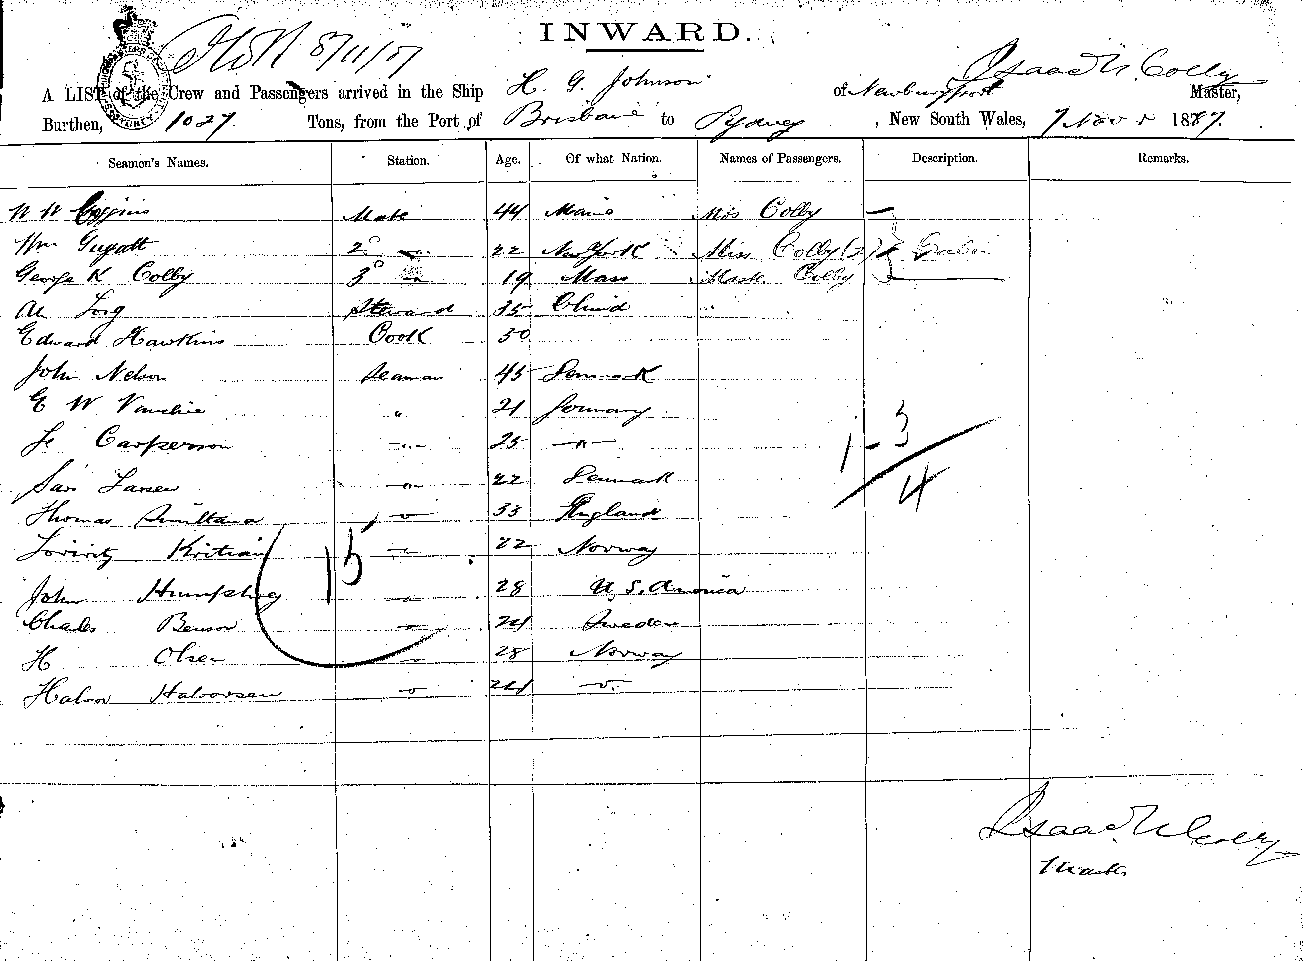 INWARD.
8/11/87
Isaac N. Colby
A LIST of the Crew and Passengers arrived in the Ship H. G. Johnson of Newburyport Master,
Burthen, 1027 Tons, from the Port of Brisbane to Sydney, New South Wales, 7 Nov r 1887.
Seamen's Names. Station. Age. Of what Nation. Names of Passengers. Description. Remarks.
W W Coggins Mate 44 Maine Mrs Colby
Wm 2 " 22 New York Miss Colby (2) Cabin
George K Colby 3 " 19 Mass Mast. Colby
Ah Steward 35 China
Edward Hawkins Cook 50
John Nelson Seaman 45 Denmark
E W 21 Germany
Casperson " 25 "
Larsen " 22 Denmark
Thomas " 33 England
Kritian " 22 Norway
John Humphrey " 28 U. S. America
Charles Benson " 24 Sweden
H Olsen " 28 Norway
Halvor Halvorsen " 24 "
1-3
4
15
Isaac N Colby
Master